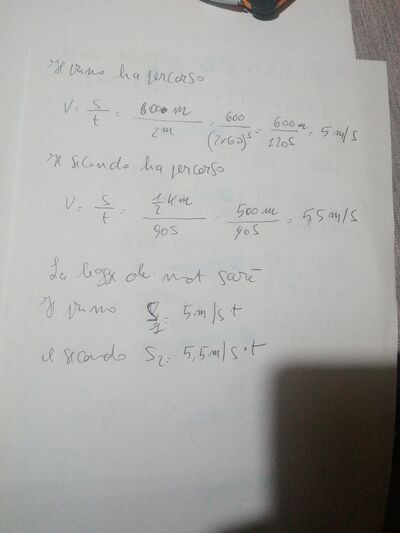 Il primo ha percorso
V = S/t = 600 m / 2m = 600 / (2×60)s = 600 m / 120s = 5 m/s
Il secondo ha percorso
V = S/t = 1/2 km / 90s = 500 m / 90s = 5,5 m/s
La legge di mot sarà
Il primo S1 = 5 m/s t
il secondo S2 = 5,5 m/s · t